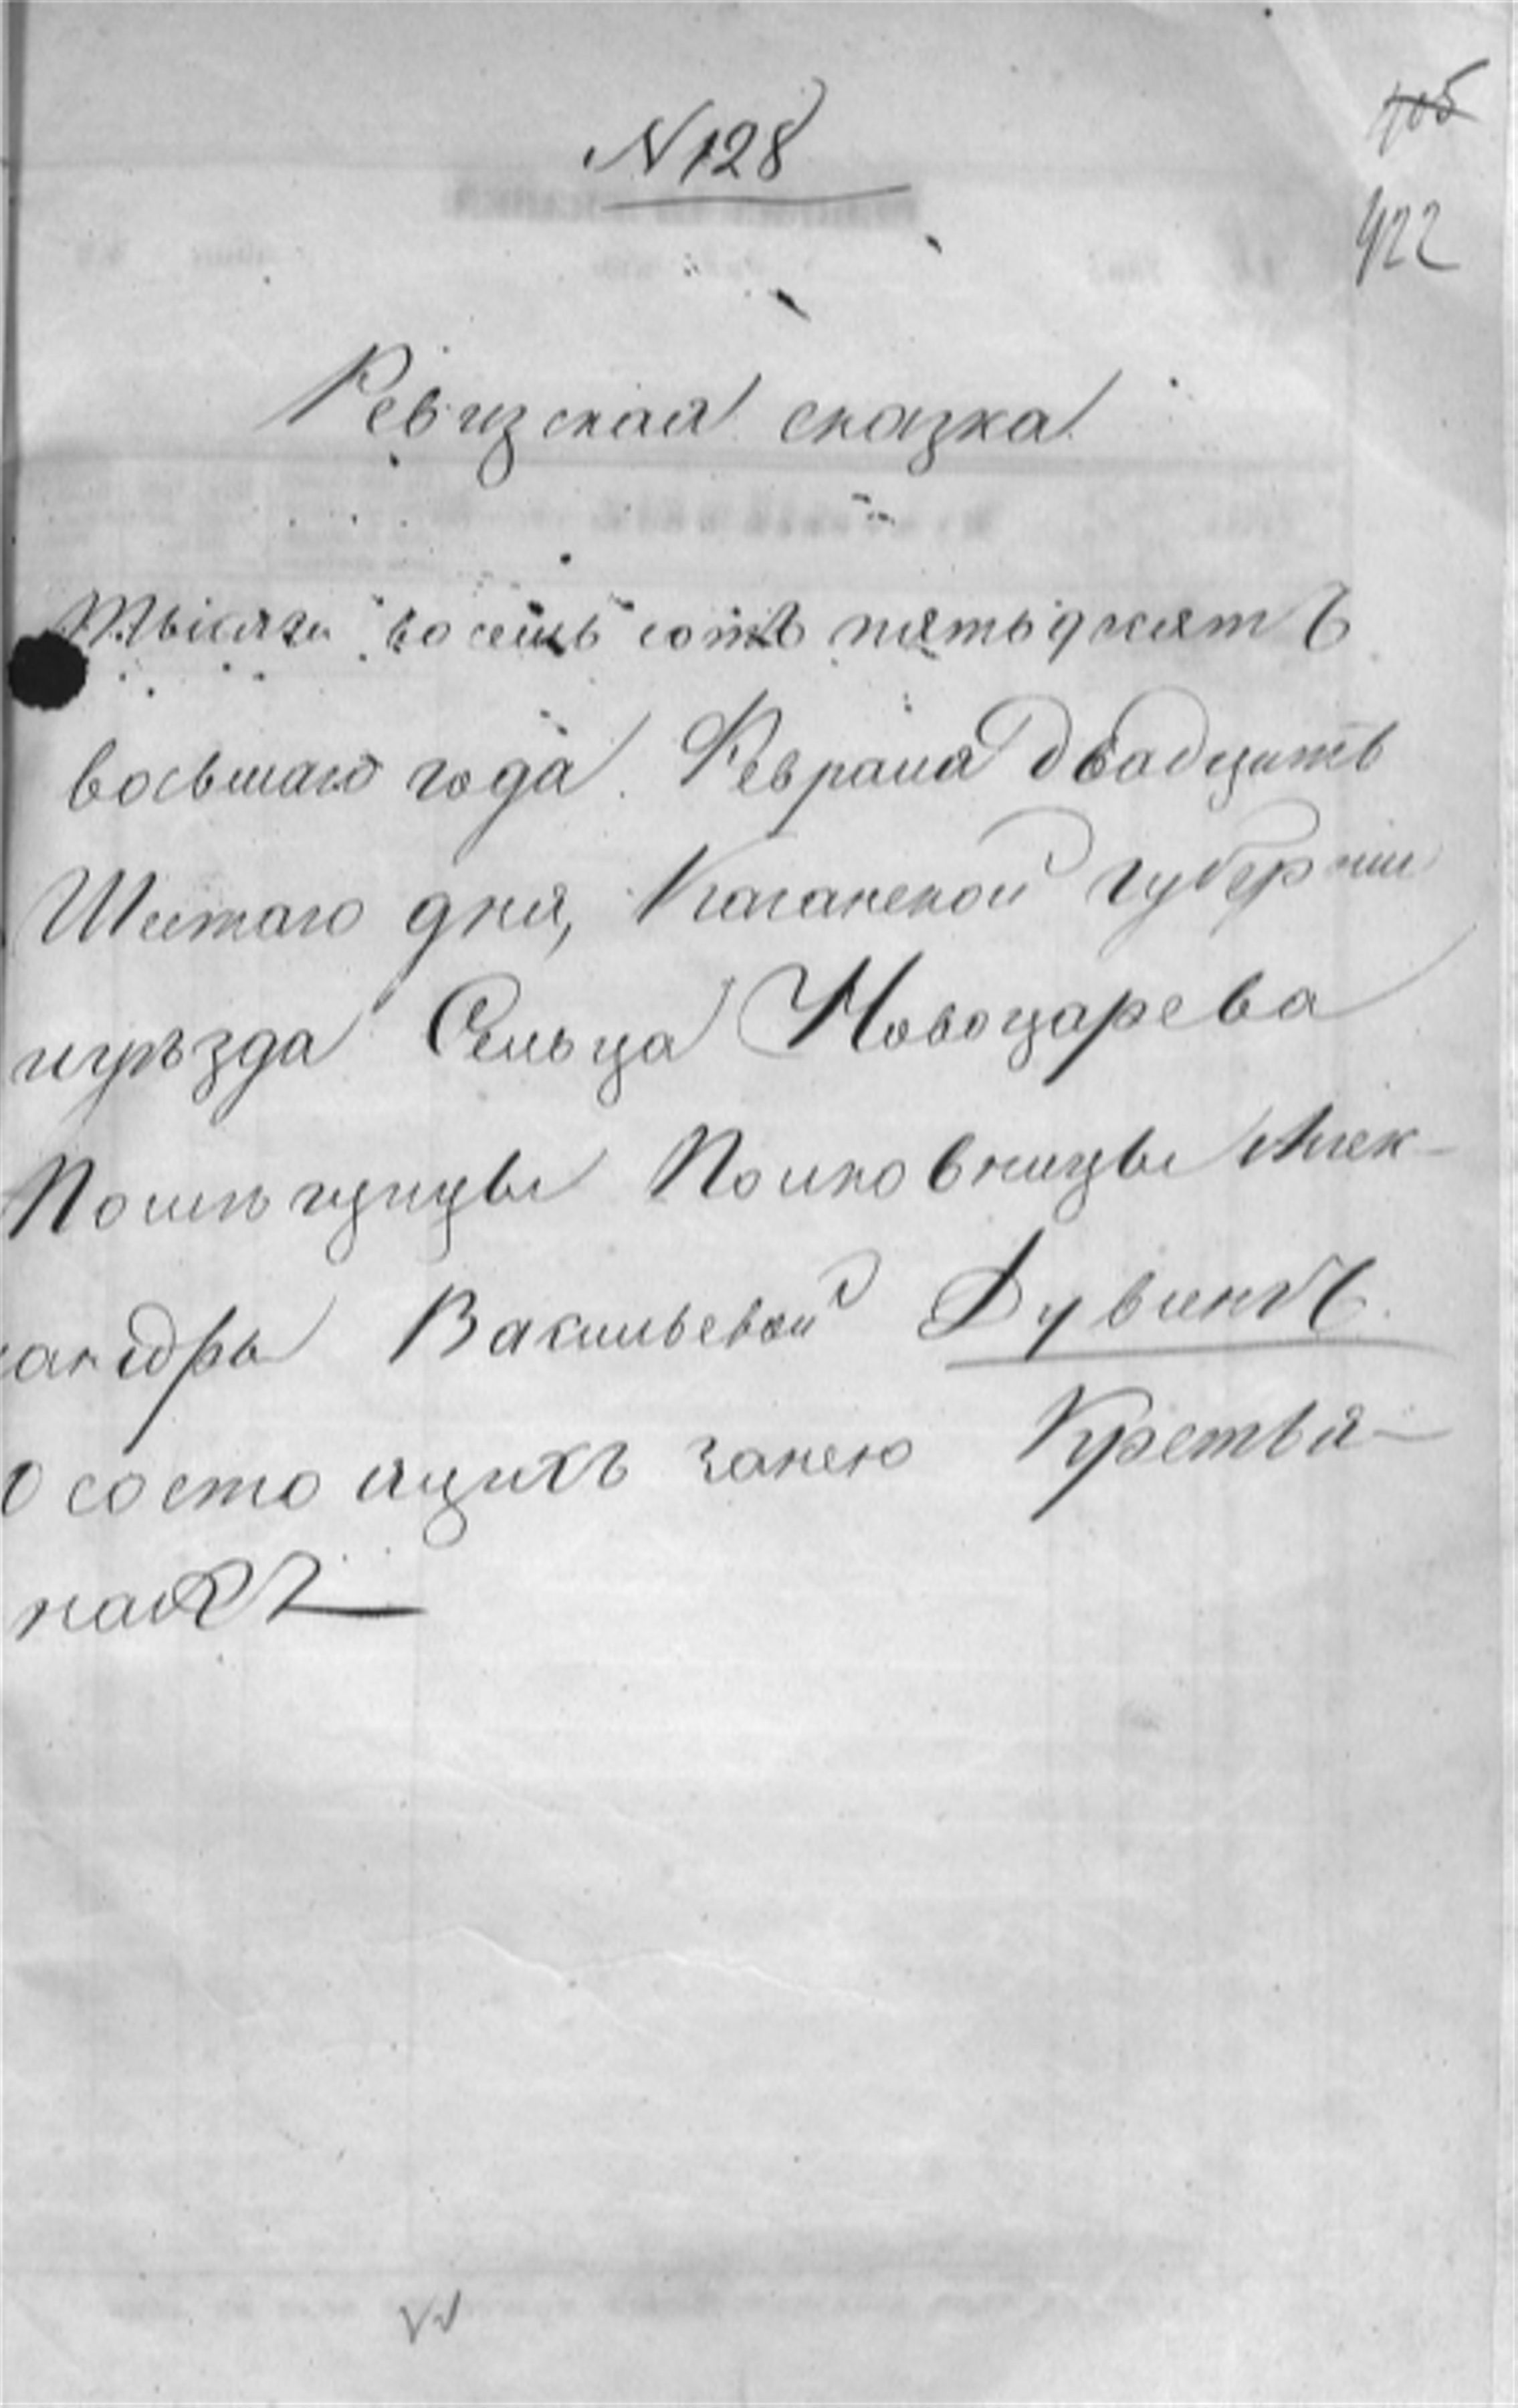 N 128
405
422
Ревизская сказка
Тысяча восемь сотъ пятьдесятъ
восьмаго года. Февраля двадцать
Шестаго дня, Казанской губернии
и уѣзда Сельца Новоцарева
Помѣщицы Полковницы Алек-
сандры Васильевой
О состоящихъ за нею Крестья-
нахъ